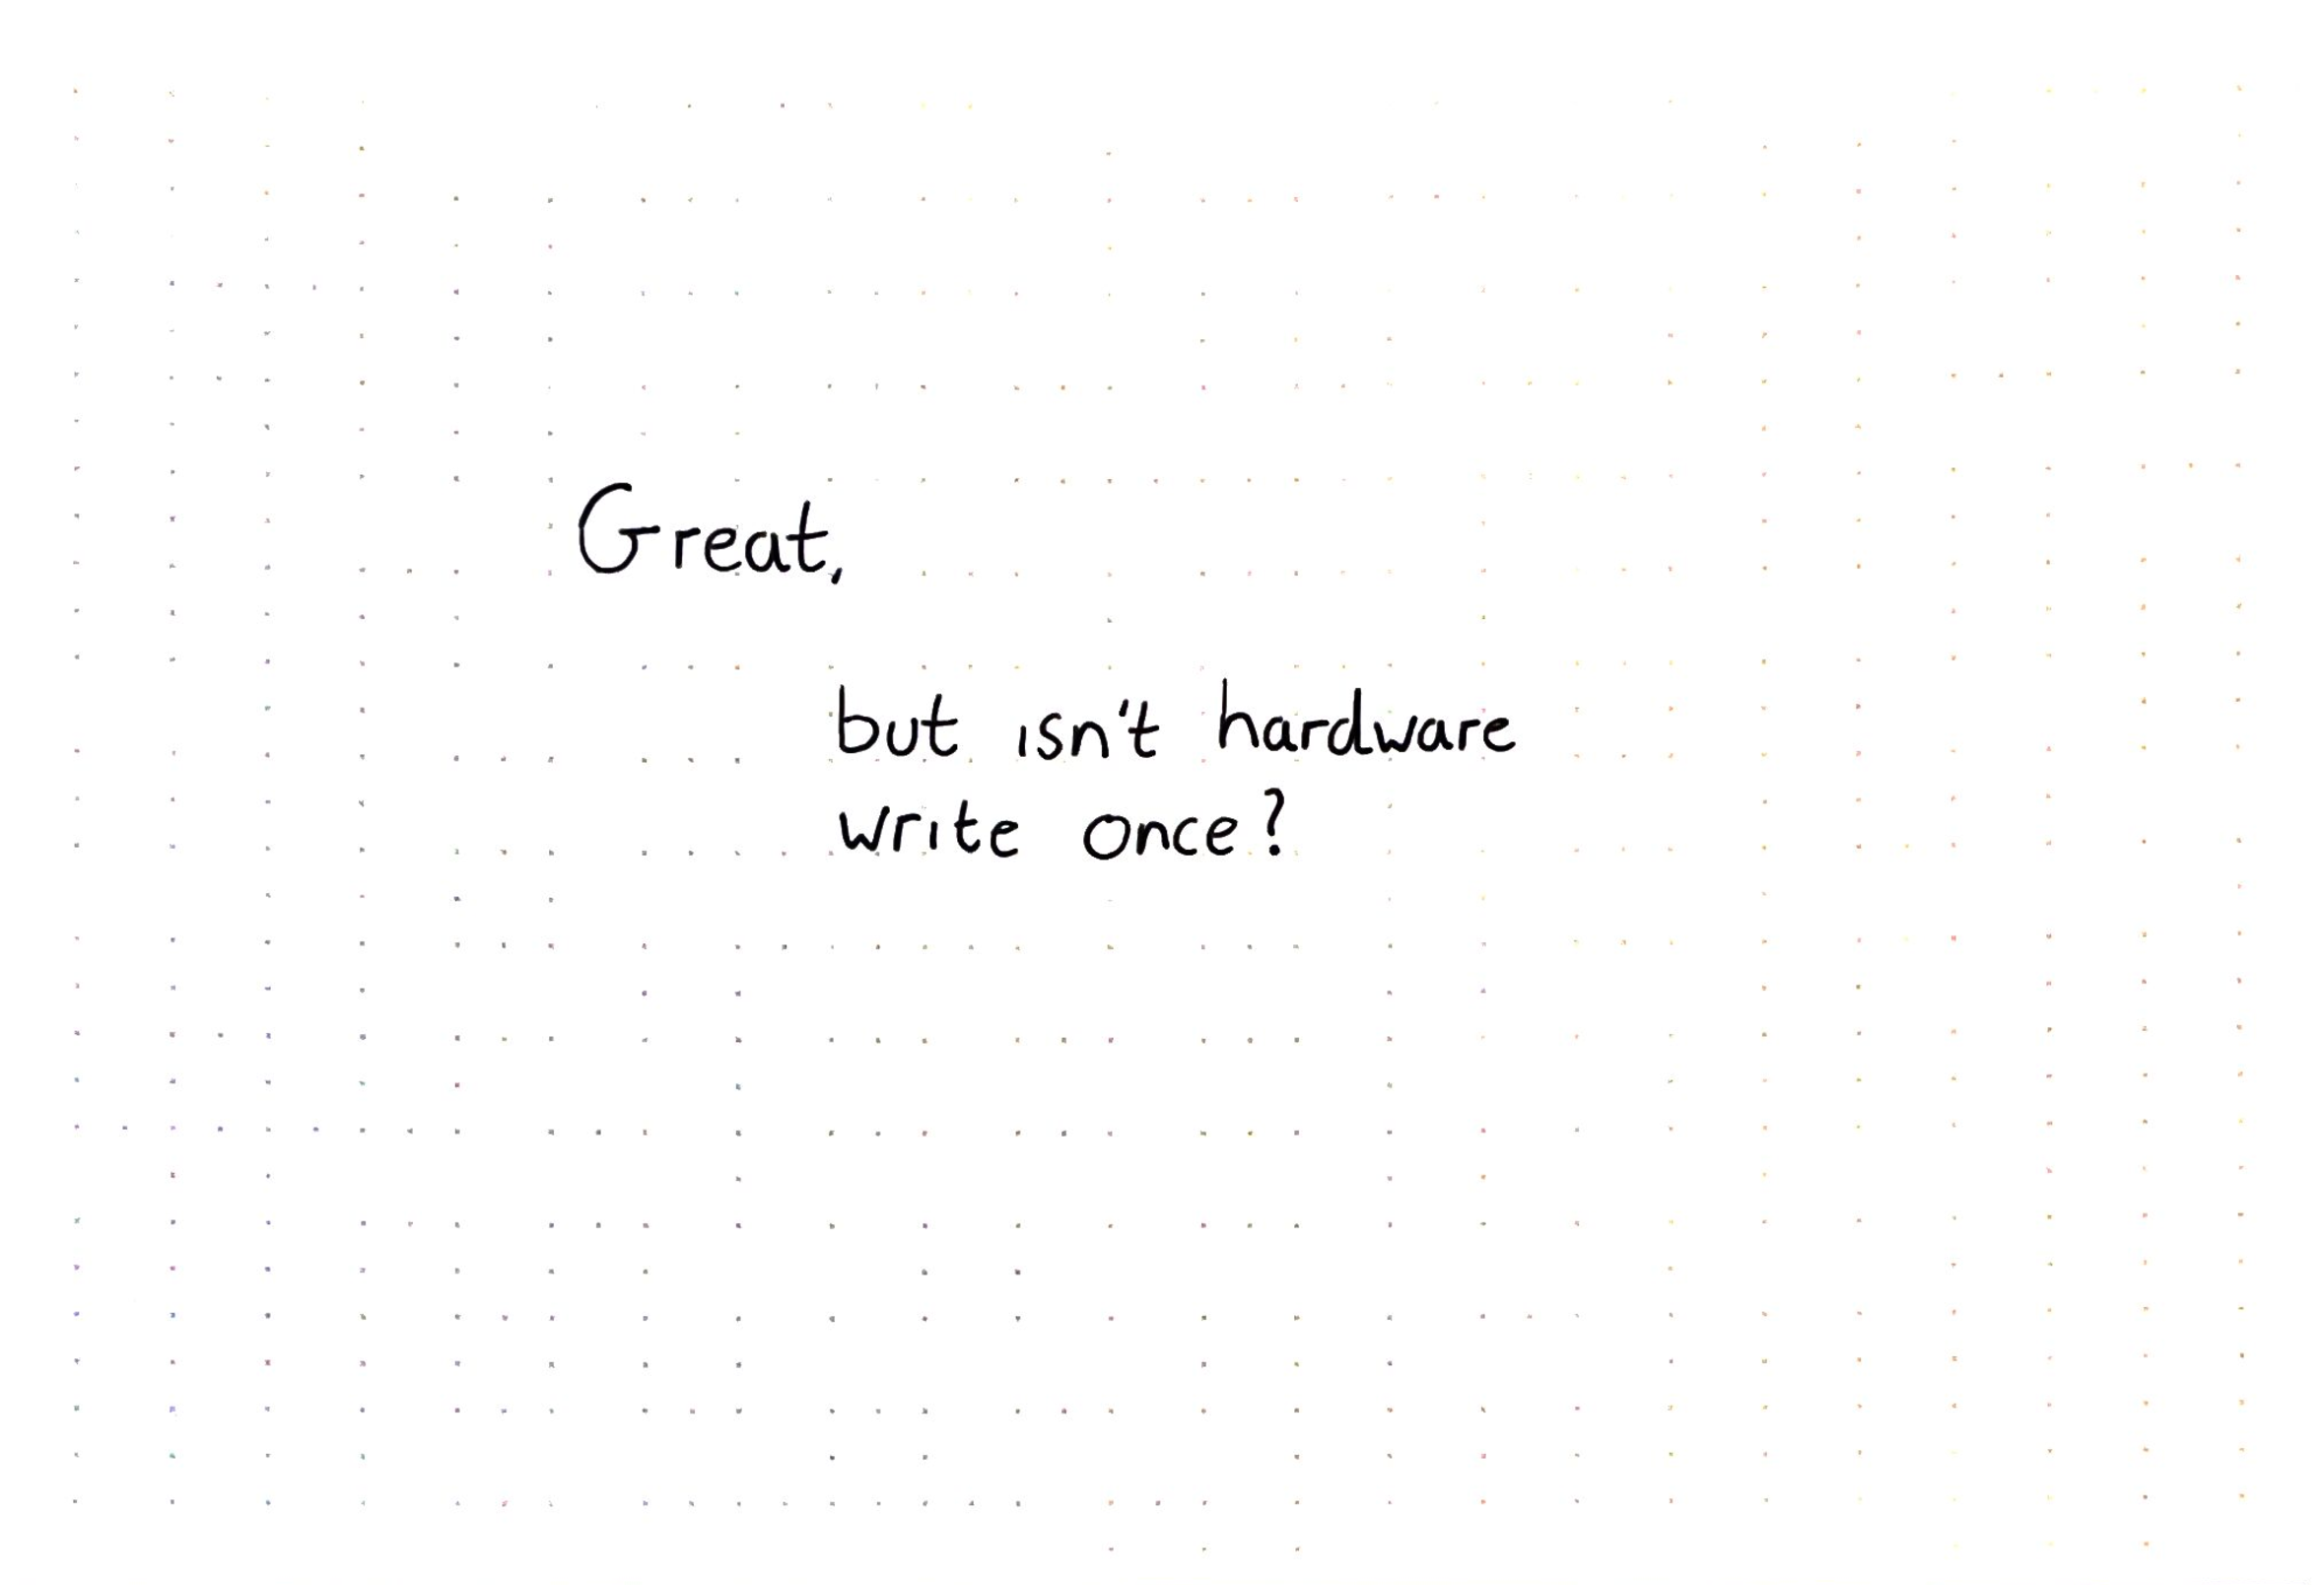 Great,
but isn't hardware
write once?